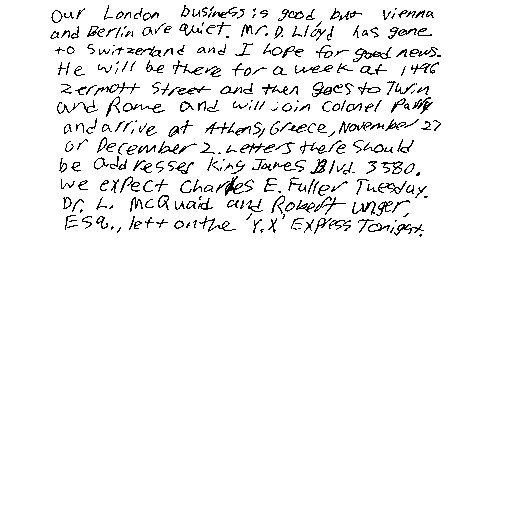 Our London business is good, but Vienna
and Berlin are quiet. Mr. D. Lloyd has gone
to Switzerland and I hope for good news.
He will be there for a week at 1496
Zermott Street and then goes to Turin
and Rome and will join Colonel Parry
and arrive at Athens, Greece, November 27
or December 2. Letters there should
be addresses King James Blvd. 3580.
We expect Charles E. Fuller Tuesday.
Dr. L. McQuaid and Robert Unger,
Esq., left on the 'Y.X' Express Tonight.